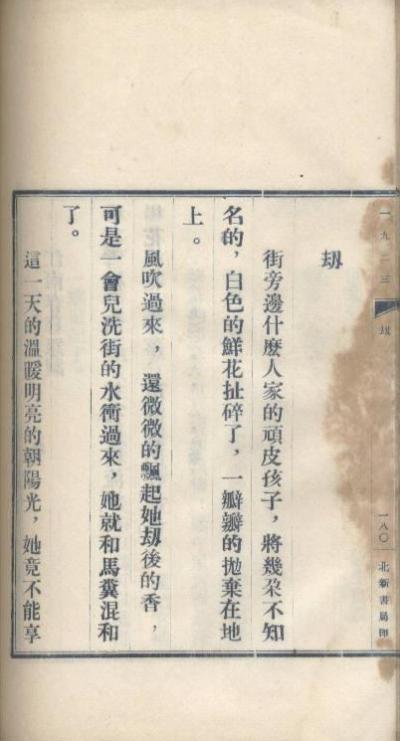 一九二三 刼 一八〇 北新書局印
刼
街旁邊什麼人家的頑皮孩子，將幾朶不知
名的，白色的鮮花扯碎了，一瓣瓣的拋棄在地
上。
風吹過來，還微微的飄起她刼後的香，
可是一會兒洗街的水衝過來，她就和馬糞混和
了。
這一天的溫暖明亮的朝陽光，她竟不能享